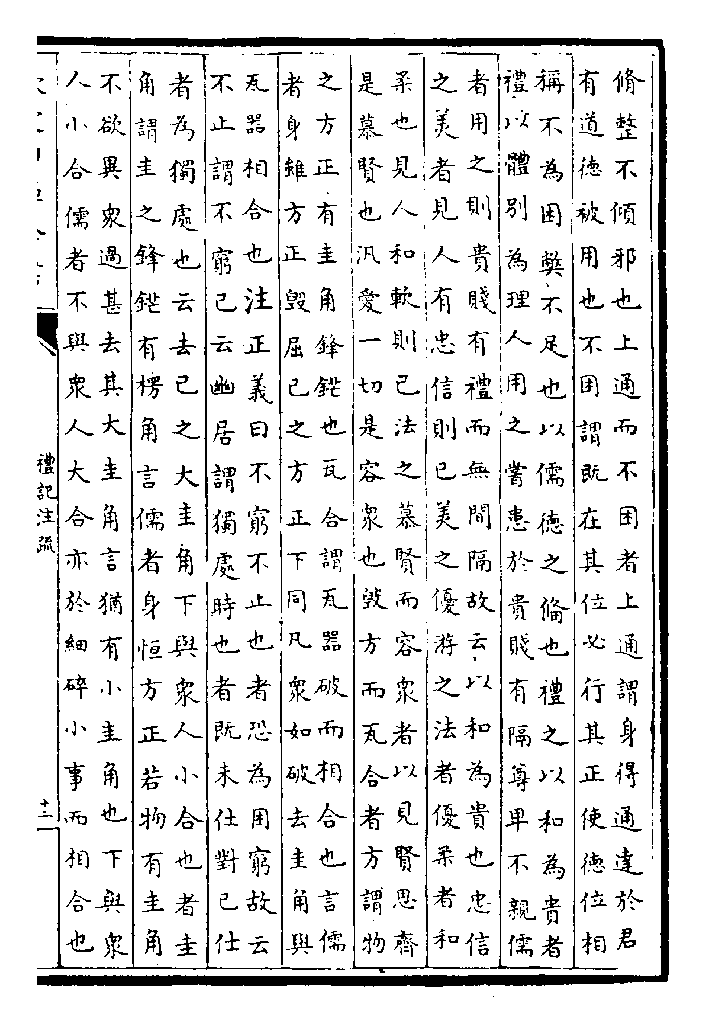 脩整不傾邪也上通而不困者上通謂身得通達於君
有道德被用也不困謂既在其位必行其正使德位相
稱不為困獘不足也以儒德之偹也禮之以和為貴者
禮以體別為理人用之嘗患於貴賤有隔尊卑不親儒
者用之則貴賤有禮而無間隔故云以和為貴也忠信
之美者見人有忠信則已美之優游之法者優柔者和
柔也見人和軟則已法之慕賢而容衆者以見賢思齊
是慕賢也汎愛一切是容衆也毀方而瓦合者方謂物
之方正有圭角鋒鋩也瓦合謂瓦器破而相合也言儒
者身雖方正毀屈已之方正下同凡衆如破去圭角與
瓦器相合也注正義曰不窮不止也者恐為困窮故云
不止謂不窮已云幽居謂獨處時也者既未仕對已仕
者為獨處也云去已之大圭角下與衆人小合也者圭
角謂圭之鋒鋩有楞角言儒者身恒方正若物有圭角
不欲異衆過甚去其大圭角言猶有小圭角也下與衆
人小合儒者不與衆人大合亦於細碎小事而相合也
禮記注疏
十二